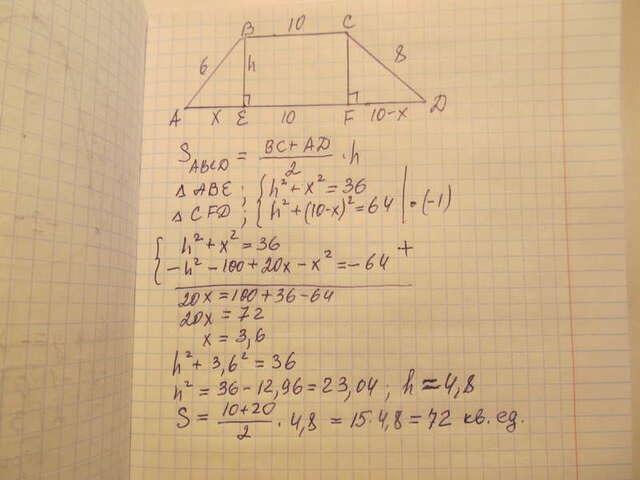 10
B C
6 h 8
A x E 10 F 10-x D
S_ABCD = (BC + AD)/2 · h
Δ ABE; { h² + x² = 36
Δ CFD; { h² + (10-x)² = 64 | · (-1)
{ h² + x² = 36
-h² - 100 + 20x - x² = -64 +
20x = 100 + 36 - 64
20x = 72
x = 3,6
h² + 3,6² = 36
h² = 36 - 12,96 = 23,04; h = 4,8
S = (10+20)/2 · 4,8 = 15·4,8 = 72 кв. ед.